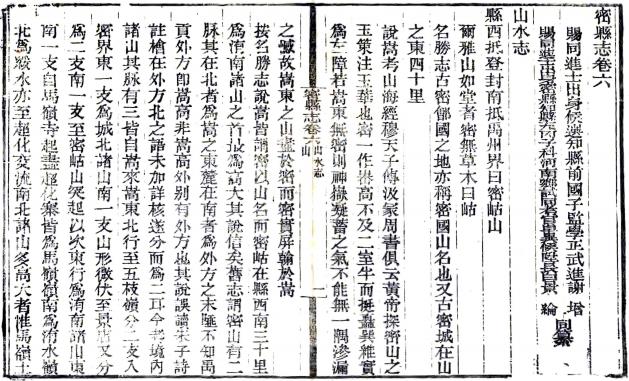 密縣志卷六
賜同進士出身候選知縣前國子監學正武進謝 增
賜同進士出身密縣知縣
同纂
山水志
爾雅山如堂者密無草木曰岵
縣西抵登封南抵禹州界曰密岵山
名勝志古密鄶國之地亦稱密國山名也又古密城在山
之東四十里
說嵩考山海經穆天子傳汲冢周書俱云黃帝探密山之
玉策注玉華也密一作峚高不及二室半而挺矗巽維實
爲左障若嵩東無密則神嶽疑蓄之氣不能無一隅滲漏
之憾故嵩東之山盡於密而密實屏翰於嵩
按名勝志說嵩皆謂密以山名而密岵在縣西南三十里
爲洧南諸山之首最爲高大其說信矣舊志謂密山有二
脉其在北者爲嵩之東麓在南者爲外方之末陲不知禹
貢外方卽嵩高非嵩高外别有外方也其說誤讀朱子詩
註檜在外方北之語未加詳核遂分而爲二耳今考境內
諸山其脉有三皆自嵩來嵩東北行至五枝嶺分二支入
密界東一支爲城北諸山南一支山形微伏至景店又分
爲二支南一支至密岵山突起以次東行爲洧南諸山東
南一支自馬嶺寺起盡超化寨皆爲馬嶺嶺南爲洧水嶺
北爲綏水亦至超化交流南北諸山多高大者惟馬嶺土
密縣志卷六 山水志
山 一